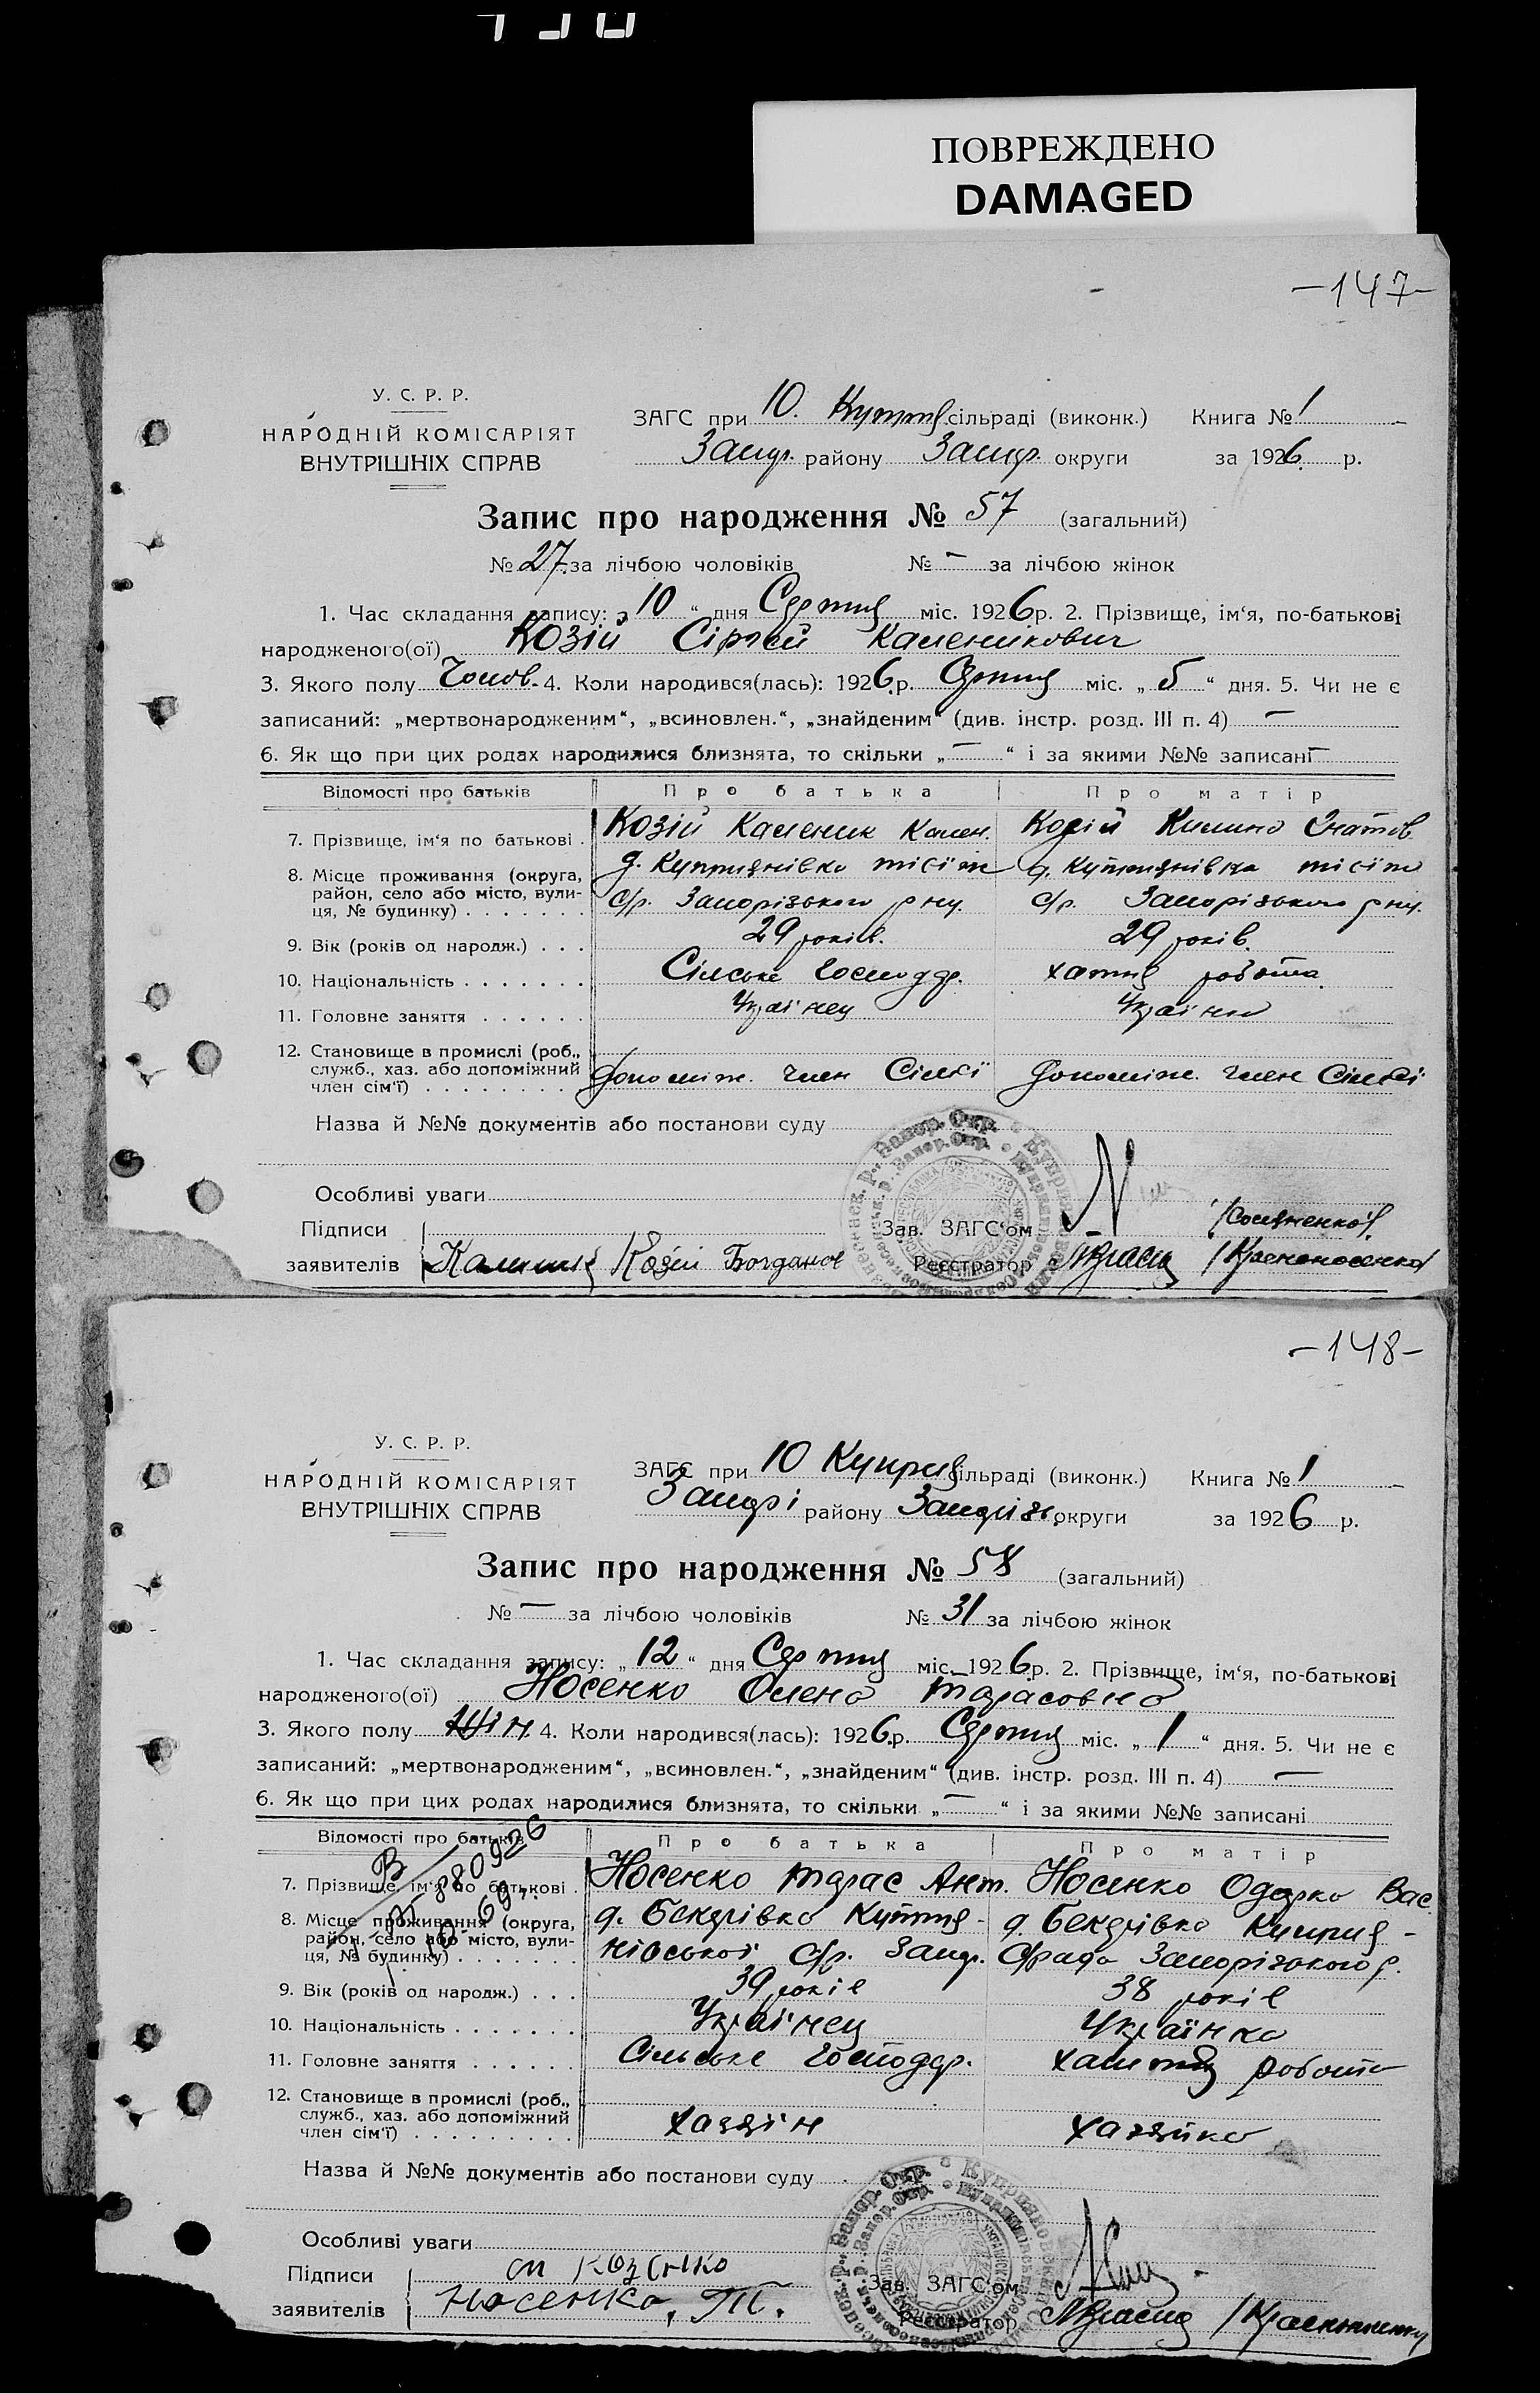 ПОВРЕЖДЕНО
DAMAGED
–147–
У. С. Р. Р.
НАРОДНІЙ КОМІСАРІЯТ
ВНУТРІШНІХ СПРАВ
ЗАГС при 10. сільраді (виконк.) Книга № 1
району округи за 1926 р.
Запис про народження № 57 (загальний)
№ 27 за лічбою чоловіків № — за лічбою жінок
1. Час складання запису: „10“ дня Серпня міс. 1926 р. 2. Прізвище, ім‘я, по-батькові
народженого(ої) Козій Сіргей Каленикович
3. Якого полу Чолов. 4. Коли народився(лась): 1926 р. Серпня міс. „5“ дня. 5. Чи не є
записаний: „мертвонародженим“, „всиновлен.“, „знайденим“ (див. інстр. розд. III п. 4) —
6. Як що при цих родах народилися близнята, то скільки „—“ і за якими №№ записані —
Відомості про батьків Про батька Про матір
7. Прізвище, ім‘я по батькові . Козій Каленик Кален. Козій Килина
8. Місце проживання (округа, район, село або місто, вулиця, № будинку) . . . . . . .
д. Куприянівка с/р. Запорізького
с/р. Запорізького
9. Вік (років од народж.) . . . 29 років. 29 років.
10. Національність . . . . . . . Сільське господар. хатня робота
11. Головне заняття . . . . . . Українец Українка
12. Становище в промислі (роб., служб., хаз. або допоміжний член сім‘ї) . . . . . . . . .
допоміж. член Сімї допоміж. член Сімї
Назва й №№ документів або постанови суду
Особливі уваги
Підписи Зав. ЗАГС‘ом
заявителів Козій Богданов Реєстратор
–148–
У. С. Р. Р.
НАРОДНІЙ КОМІСАРІЯТ
ВНУТРІШНІХ СПРАВ
ЗАГС при 10 Куприя сільраді (виконк.) Книга № 1
району округи за 1926 р.
Запис про народження № 58 (загальний)
№ — за лічбою чоловіків № 31 за лічбою жінок
1. Час складання запису: „12“ дня Серпня міс. 1926 р. 2. Прізвище, ім‘я, по-батькові
народженого(ої) Носенко Олена Тарасовна
3. Якого полу Жін. 4. Коли народився(лась): 1926 р. Серпня міс. „1“ дня. 5. Чи не є
записаний: „мертвонародженим“, „всиновлен.“, „знайденим“ (див. інстр. розд. III п. 4) —
6. Як що при цих родах народилися близнята, то скільки „—“ і за якими №№ записані
Відомості про батьків Про батька Про матір
7. Прізвище, ім‘я по батькові . Носенко Тарас Ант. Носенко Одарка Вас.
8. Місце проживання (округа, район, село або місто, вулиця, № будинку) . . . . . . .
д. Бекарівка д. Бекарівка Куприя-
с/р. с/рада Запорізького р.
9. Вік (років од народж.) . . . 39 років 38 років
10. Національність . . . . . . . Українец Українка
11. Головне заняття . . . . . . Сільське господар. хатня робота
12. Становище в промислі (роб., служб., хаз. або допоміжний член сім‘ї) . . . . . . . . .
хазяін хазяйка
Назва й №№ документів або постанови суду
Особливі уваги
Підписи Зав. ЗАГС‘ом
заявителів Носенко, Т. Реєстратор